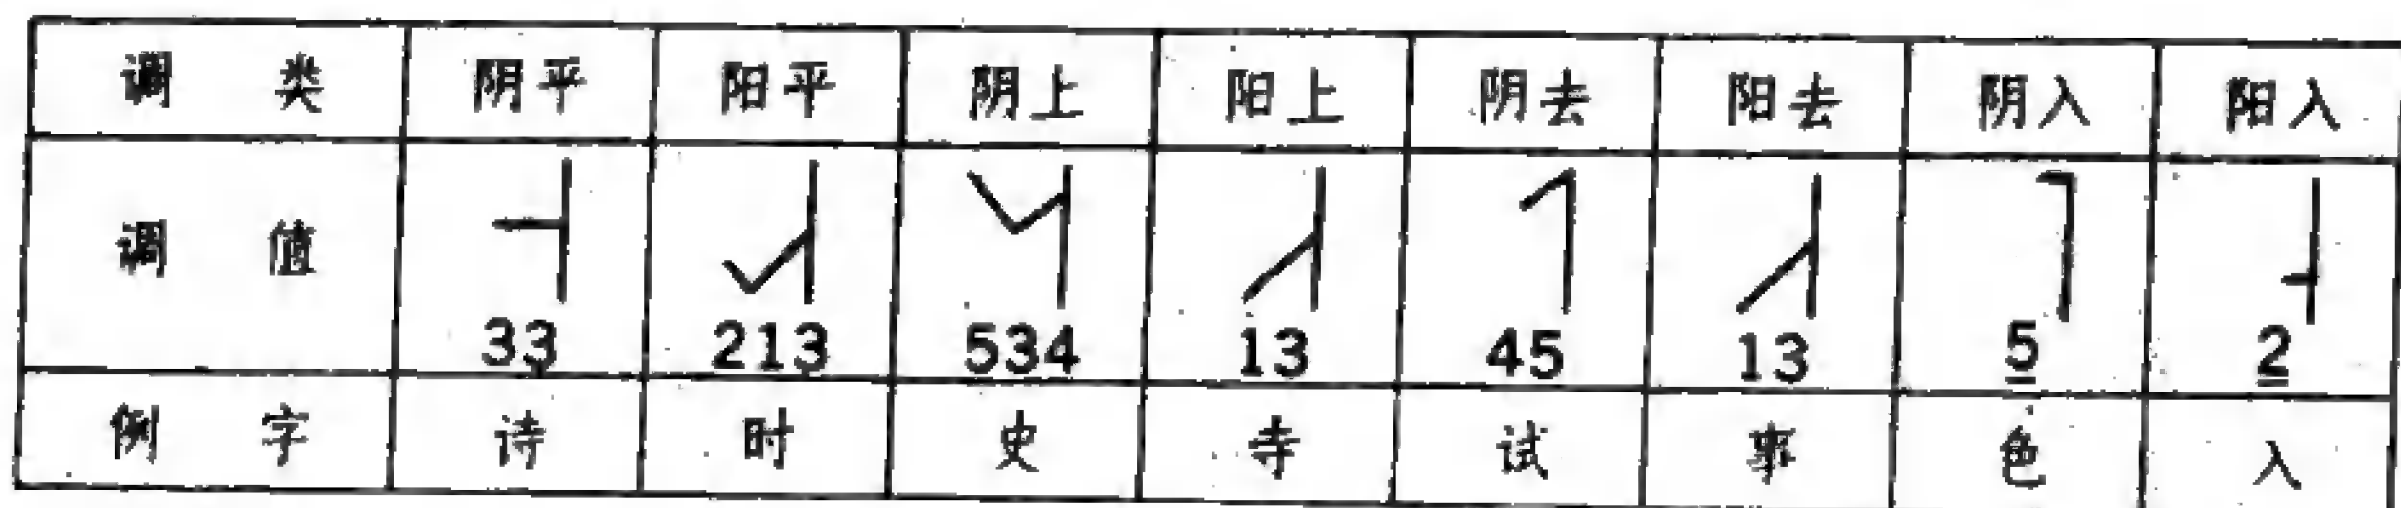 调类 阴平 阳平 阴上 阳上 阴去 阳去 阴入 阳入
调值 33 213 534 13 45 13 5 2
例字 诗 时 史 寺 试 事 色 入